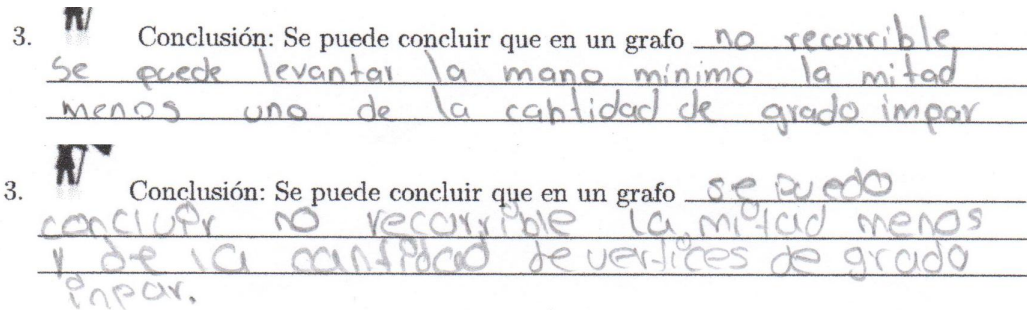 3. Conclusión: Se puede concluir que en un grafo no recorrible
se puede levantar la mano mínimo la mitad
menos uno de la cantidad de grado impar
3. Conclusión: Se puede concluir que en un grafo se puedo
concluir no recorrible la mitad menos
1 de la cantidad de vertices de grado
inpar.